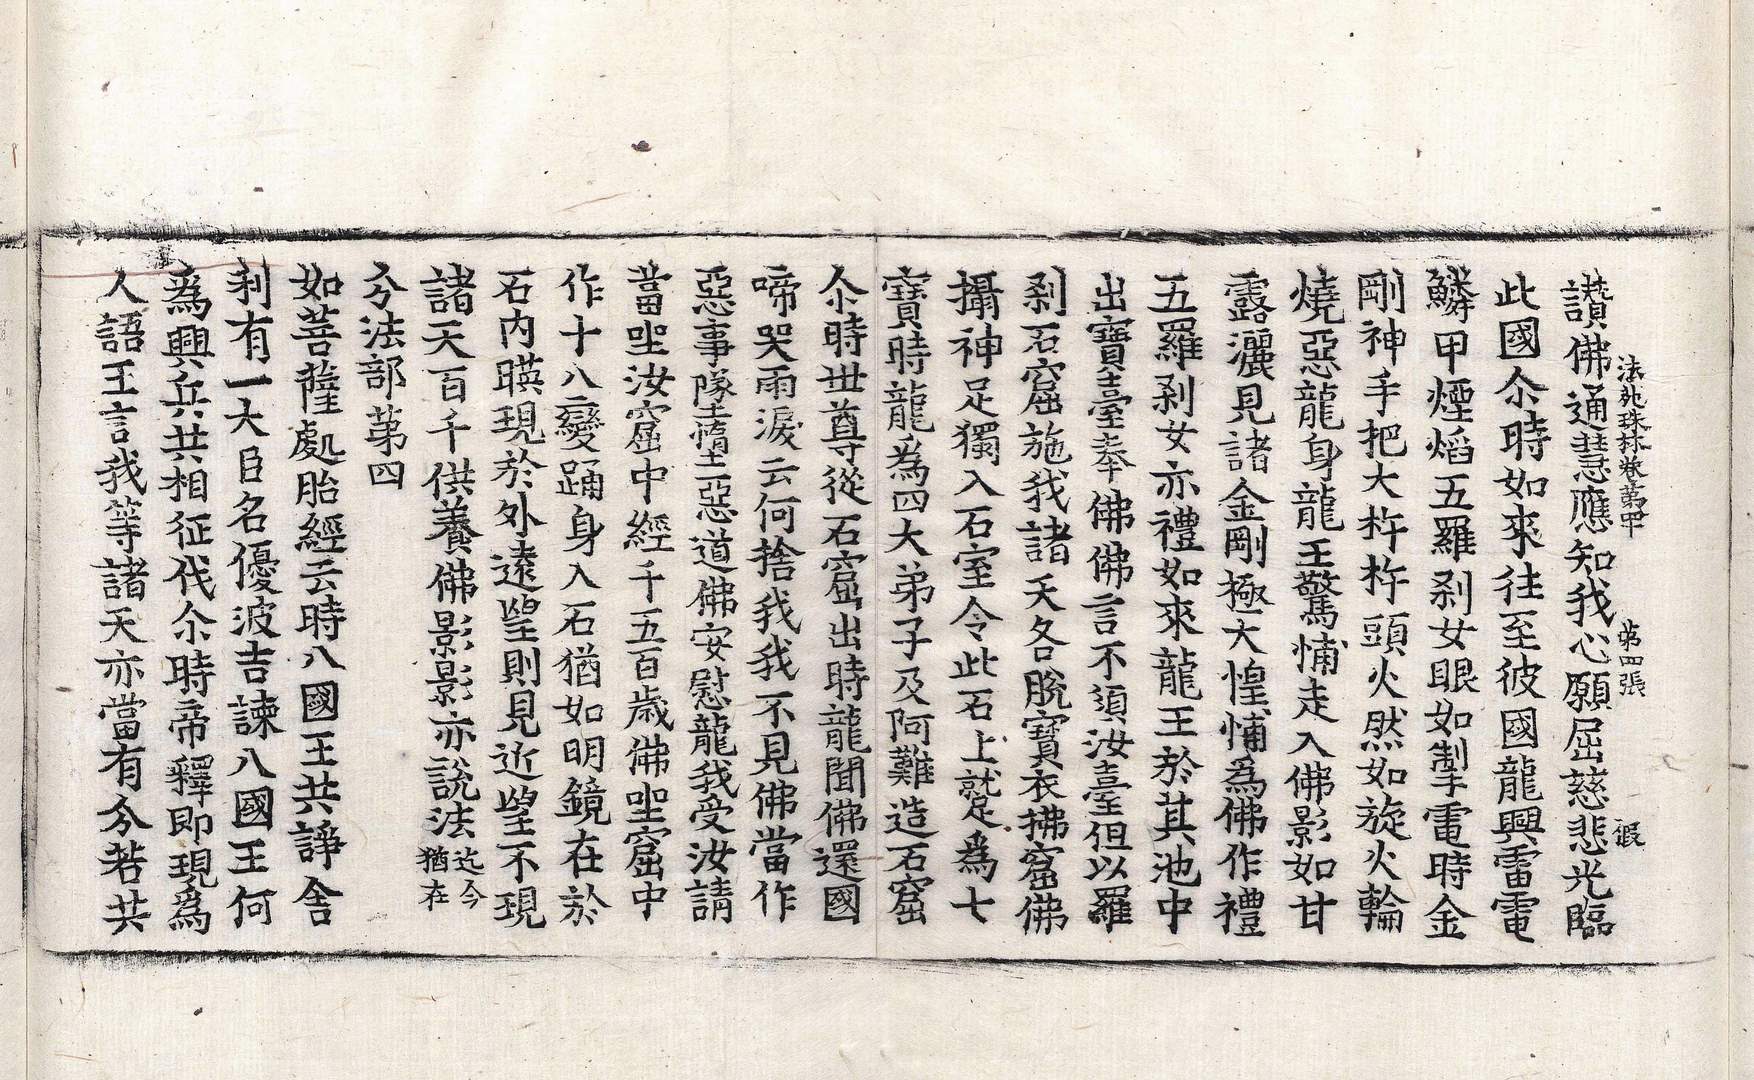 法苑珠林卷第四十 第四張 假
讃佛通慧應知我心願屈慈悲光臨
此國尒時如來往至彼國龍興雷電
鱗甲煙焰五羅剎女眼如掣電時金
剛神手把大杵杵頭火然如旋火輪
燒惡龍身龍王驚怖走入佛影如甘
露灑見諸金剛極大惶怖爲佛作禮
五羅剎女亦禮如來龍王於其池中
出寶臺奉佛佛言不須汝臺但以羅
剎石窟施我諸天各脫寶衣拂窟佛
攝神足獨入石室令此石上就足爲七
寶時龍爲四大弟子及阿難造石窟
尒時世尊從石窟出時龍聞佛還國
啼哭雨淚云何捨我我不見佛當作
惡事墜墮惡道佛安慰龍我受汝請
當坐汝窟中經千五百歲佛坐窟中
作十八變踊身入石猶如明鏡在於
石內暎現於外遠望則見近望不現
諸天百千供養佛影影亦說法迄今猶在
分法部第四
如菩薩處胎經云時八國王共諍舍
利有一大臣名優波吉諫八國王何
爲興兵共相征伐尒時帝釋即現爲
人語王言我等諸天亦當有分若共